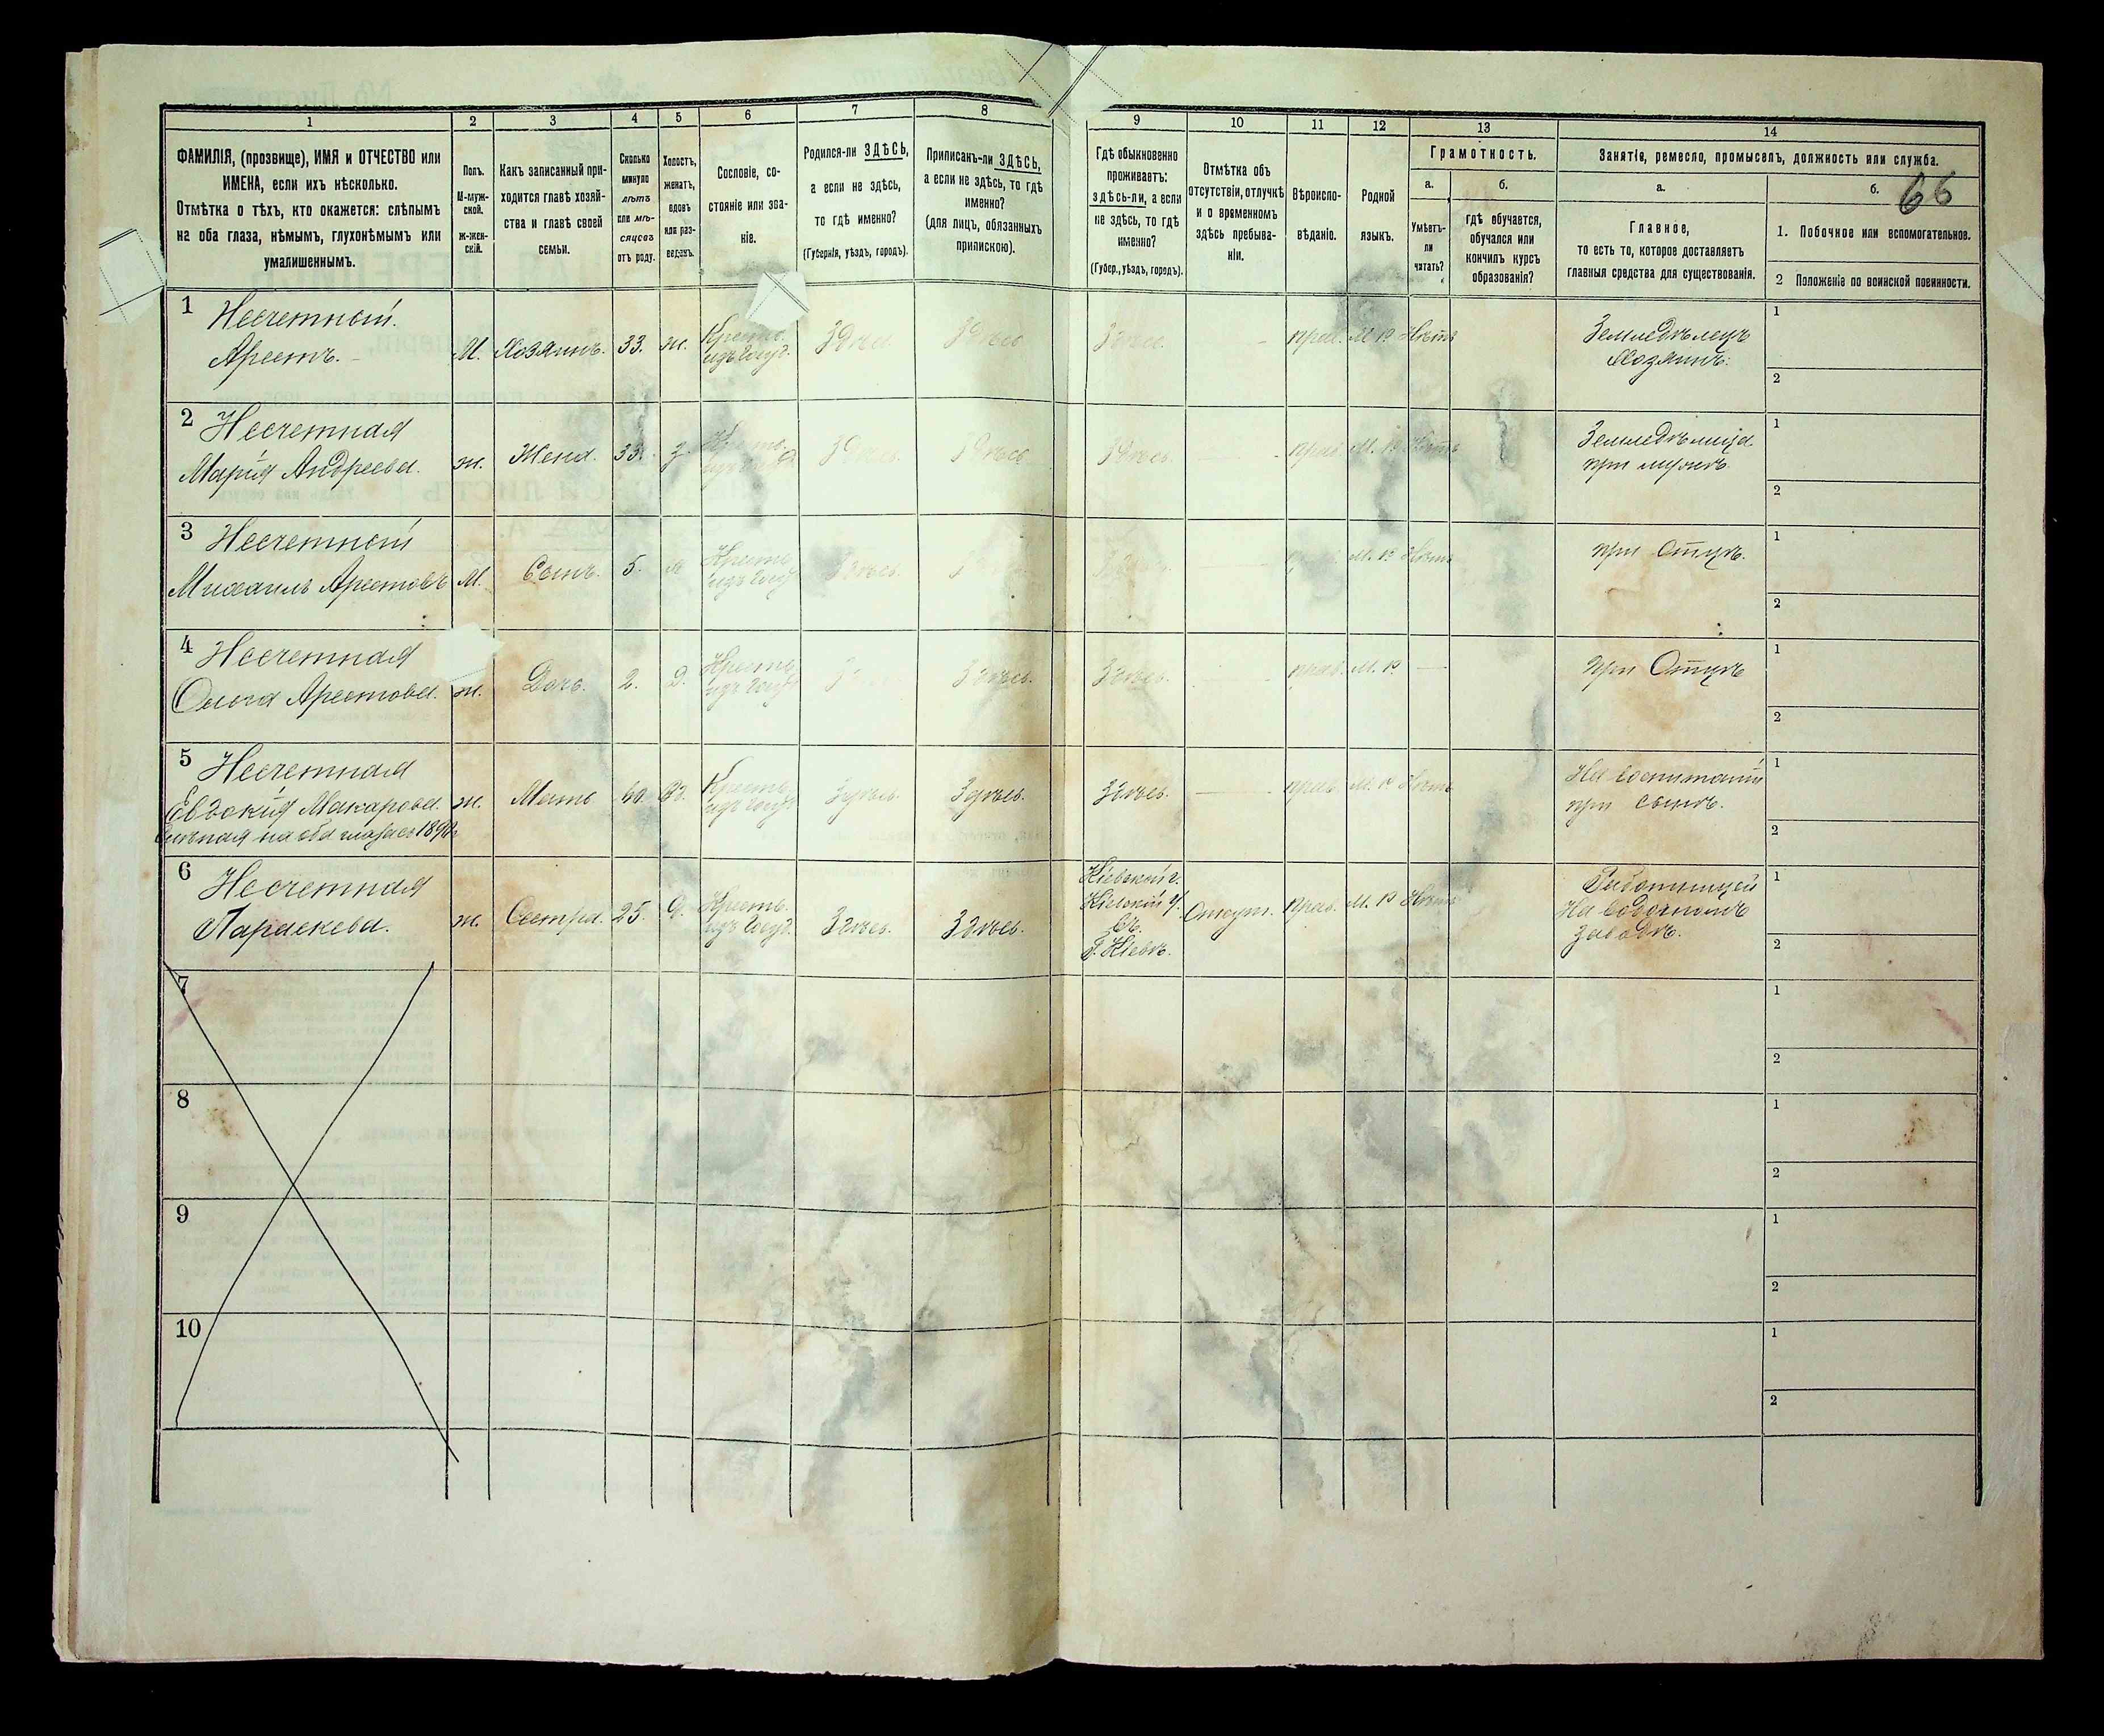 66
1
2
3
4
5
6
7
8
9
10
11
12
13
14
ФАМИЛІЯ, (прозвище), ИМЯ и ОТЧЕСТВО или
ИМЕНА, если ихъ нѣсколько.
Отмѣтка о тѣхъ, кто окажется: слѣпымъ
на оба глаза, нѣмымъ, глухонѣмымъ или
умалишеннымъ.
Полъ.
М-муж-
ской.
ж-жен-
скій.
Какъ записанный при-
ходится главѣ хозяй-
ства и главѣ своей
семьи.
Сколько
минуло
лѣтъ
или мѣ-
сяцевъ
отъ роду.
Холостъ,
женатъ,
вдовъ
или раз-
веденъ.
Сословіе, со-
стояніе или зва-
ніе.
Родился-ли ЗДѢСЬ,
а если не здѣсь,
то гдѣ именно?
(Губернія, уѣздъ, городъ).
Приписанъ-ли ЗДѢСЬ,
а если не здѣсь, то гдѣ
именно?
(для лицъ, обязанныхъ
припискою).
Гдѣ обыкновенно
проживаетъ:
здѣсь-ли, а если
не здѣсь, то гдѣ
именно?
(Губер., уѣздъ, городъ).
Отмѣтка объ
отсутствіи, отлучкѣ
и о временномъ
здѣсь пребыва-
ніи.
Вѣроиспо-
вѣданіе.
Родной
языкъ.
Грамотность.
а.
Умѣетъ-
ли
читать?
б.
гдѣ обучается,
обучался или
кончилъ курсъ
образованія?
Занятіе, ремесло, промыселъ, должность или служба.
а.
Главное,
то есть то, которое доставляетъ
главныя средства для существованія.
б.
1. Побочное или вспомогательное.
2 Положеніе по воинской повинности.
1 Несчетный.
Арестъ.
М. Хозяинъ. 33. ж. Крест.
изъ Госуд.
Здѣсь Здѣсь Здѣсь
прав. М. р. Нѣтъ
Земледѣлецъ
Хозяинъ.
1
2
2 Несчетная
Марія Андреева.
ж. Жена. 33. з. Крест.
Здѣсь. Здѣсь Здѣсь.
прав. М. р. Нѣтъ
Земледѣлица
при мужѣ.
1
2
3 Несчетный
Михаилъ Арестовъ
М. Сынъ. 5. Крест.
изъ Госуд.
Здѣсь.
М. р. Нѣтъ
при Отцѣ.
1
2
4 Несчетная
Ольга Арестова.
ж. Дочь. 2. д. Крест.
изъ Госуд.
Здѣсь. Здѣсь.
прав. М. р.
при Отцѣ
1
2
5 Несчетная
Евдокія Макарова.
Слѣпая на оба глаза съ
ж. Мать 60. Вд. Крест.
изъ Госуд.
Здѣсь. Здѣсь. Здѣсь.
прав. М. р. Нѣтъ
На воспитаніи
при сынѣ.
1
2
6 Несчетная
Параскева.
ж. Сестра. 25. д. Крест.
изъ Госуд.
Здѣсь. Здѣсь.
Кіевской г.
Кіевскій у.
Въ
г. Кіевѣ.
Отсут. Прав. М. р. Нѣтъ
Работницей
На
заводѣ.
1
2
7
1
2
8
1
2
9
1
2
10
1
2